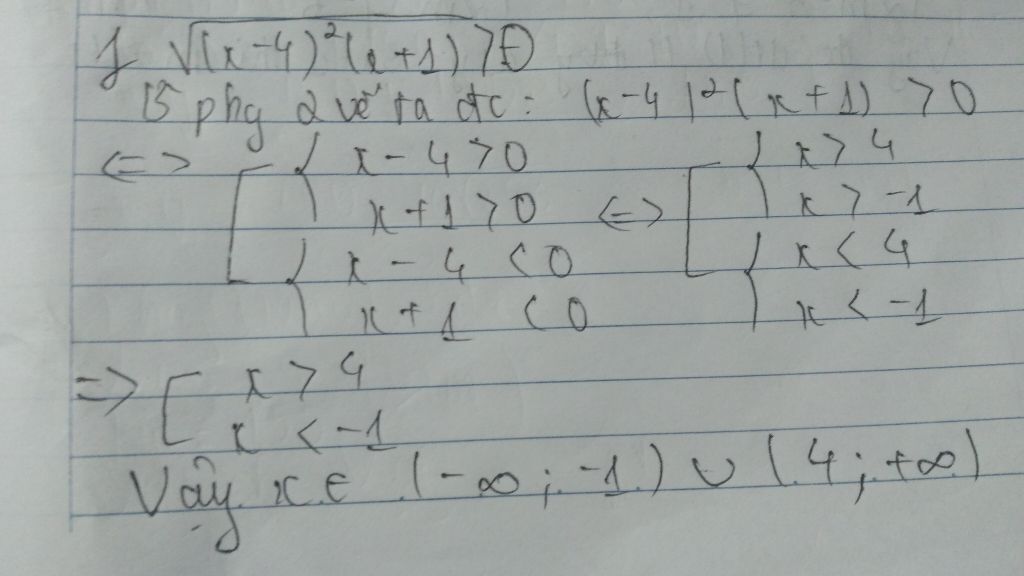 f √(x-4)²(x+1) > 0
B phg 2 vế ta đc: (x-4)²(x+1) > 0
<=> [ { x - 4 > 0
x + 1 > 0
{ x - 4 < 0
x + 1 < 0
<=> [ { x > 4
x > -1
{ x < 4
x < -1
=> [ x > 4
x < -1
Vậy x ∈ (-∞; -1) ∪ (4; +∞)